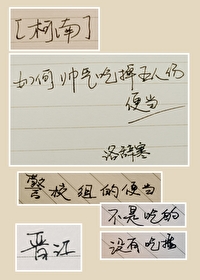 [柯南]
如何帅气吃掉五人份
便当
洛辞寒
警校组的便当
不是吃的
没有吃掉
晋江